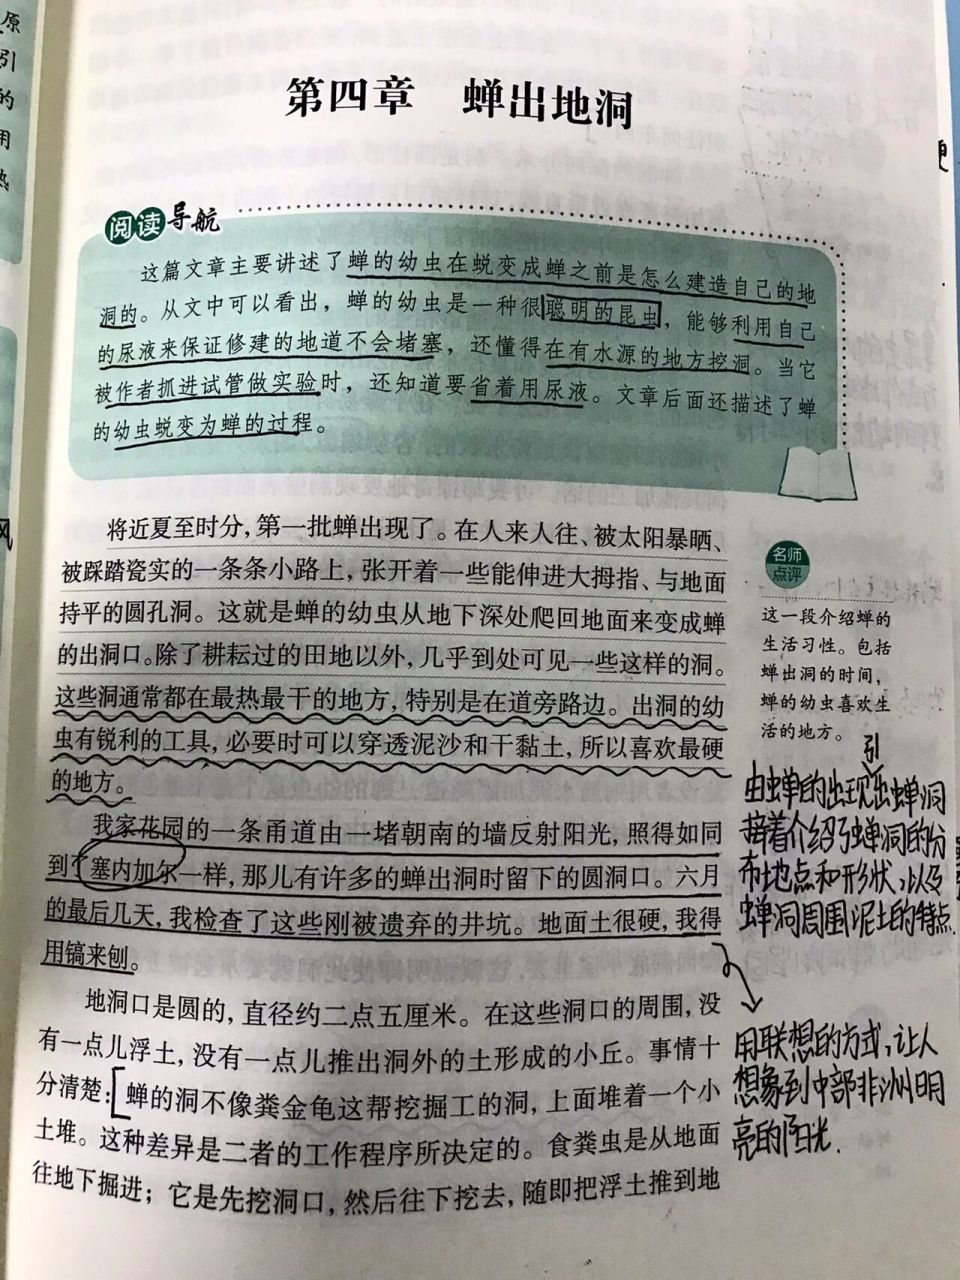 原
引
的
用
热
风
第四章 蝉出地洞
阅读导航
这篇文章主要讲述了蝉的幼虫在蜕变成蝉之前是怎么建造自己的地
洞的。从文中可以看出，蝉的幼虫是一种很聪明的昆虫，能够利用自己
的尿液来保证修建的地道不会堵塞，还懂得在有水源的地方挖洞。当它
被作者抓进试管做实验时，还知道要省着用尿液。文章后面还描述了蝉
的幼虫蜕变为蝉的过程。
将近夏至时分，第一批蝉出现了。在人来人往、被太阳暴晒、
被踩踏瓷实的一条条小路上，张开着一些能伸进大拇指、与地面
持平的圆孔洞。这就是蝉的幼虫从地下深处爬回地面来变成蝉
的出洞口。除了耕耘过的田地以外，几乎到处可见一些这样的洞。
这些洞通常都在最热最干的地方，特别是在道旁路边。出洞的幼
虫有锐利的工具，必要时可以穿透泥沙和干黏土，所以喜欢最硬
的地方。
我家花园的一条甬道由一堵朝南的墙反射阳光，照得如同
到了塞内加尔一样，那儿有许多的蝉出洞时留下的圆洞口。六月
的最后几天，我检查了这些刚被遗弃的井坑。地面土很硬，我得
用镐来刨。
地洞口是圆的，直径约二点五厘米。在这些洞口的周围，没
有一点儿浮土，没有一点儿推出洞外的土形成的小丘。事情十
分清楚：蝉的洞不像粪金龟这帮挖掘工的洞，上面堆着一个小
土堆。这种差异是二者的工作程序所决定的。食粪虫是从地面
往地下掘进；它是先挖洞口，然后往下挖去，随即把浮土推到地
名师
点评
这一段介绍蝉的
生活习性。包括
蝉出洞的时间，
蝉的幼虫喜欢生
活的地方。
引
由蝉的出现出蝉洞
接着介绍了蝉洞的分
布地点和形状，以及
蝉洞周围泥土的特点.
用联想的方式，让人
想象到中部非洲明
亮的阳光.